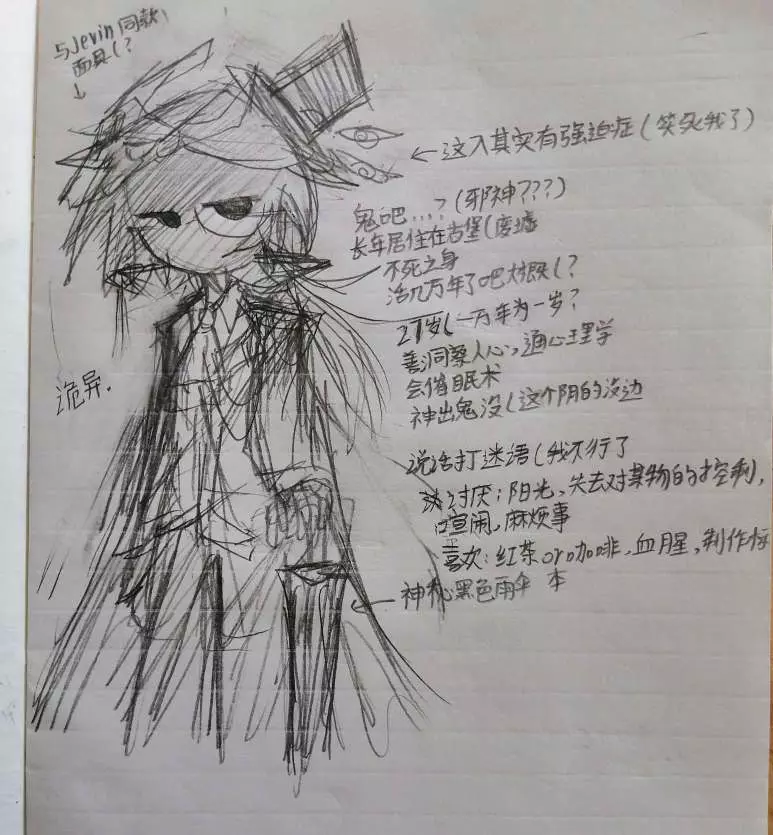 与Jevin同款
面具(?
↓
←这人其实有强迫症(笑死我了)
鬼吧...?(邪神???)
长年居住在古堡(废墟
不死之身
活几万年了吧大概(?
27岁(一万年为一岁?
善洞察人心,通心理学
会催眠术
神出鬼没(这个阴的没边
诡异.
说话打迷语(我不行了
讨厌:阳光,失去对某物的控制,
喧闹,麻烦事
喜欢:红茶or咖啡,血腥,制作标
本
←神秘黑色雨伞